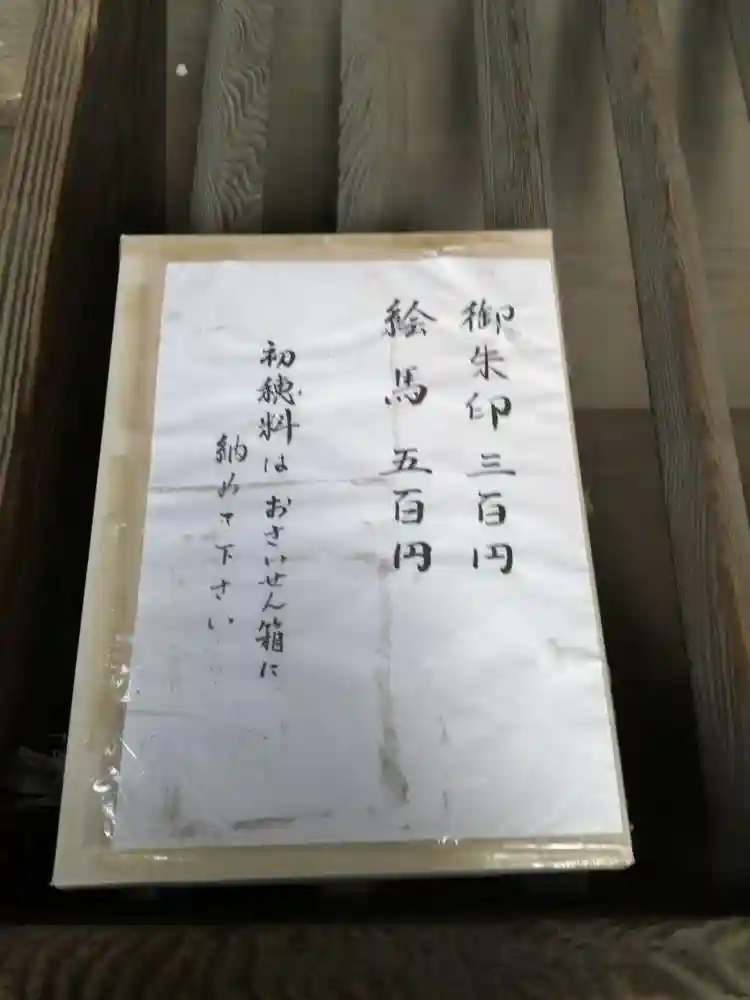 御朱印三百円
絵馬五百円
初穂料はおさいせん箱に
納めて下さい